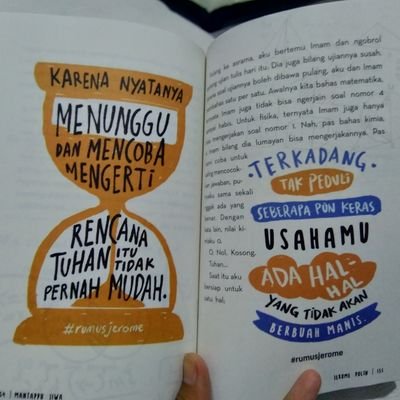 KARENA NYATANYA
MENUNGGU
DAN MENCOBA
MENGERTI
RENCANA
TUHAN ITU
TIDAK
PERNAH MUDAH.
#rumusjerome
54 | MANTAPPU JIWA
ke asrama, aku bertemu Imam dan ngobrol
tulis hari itu. Dia juga bilang ujiannya susah.
soal ujiannya boleh dibawa pulang, aku dan Imam
satu per satu. Awalnya kita bahas matematika,
Imam juga tidak bisa ngerjain soal nomor 4
habis. Untuk fisika, ternyata Imam juga hanya
mengerjakan soal nomor 1. Nah, pas bahas kimia,
Imam dia lumayan bisa mengerjakannya. Pas
coba untuk
mencocok-
jawaban, pu-
sama sekali
nggak ada yang
benar. Dengan
kata lain, nilai ki-
miaku 0.
0. Nol. Kosong.
Tuhan...
Saat itu aku
bersiap untuk
satu hal;
TERKADANG
TAK PEDULI
SEBERAPA PUN KERAS
USAHAMU
ADA HAL-
HAL
YANG TIDAK AKAN
BERBUAH MANIS.
#rumusjerome
JEROME POLIN | 155